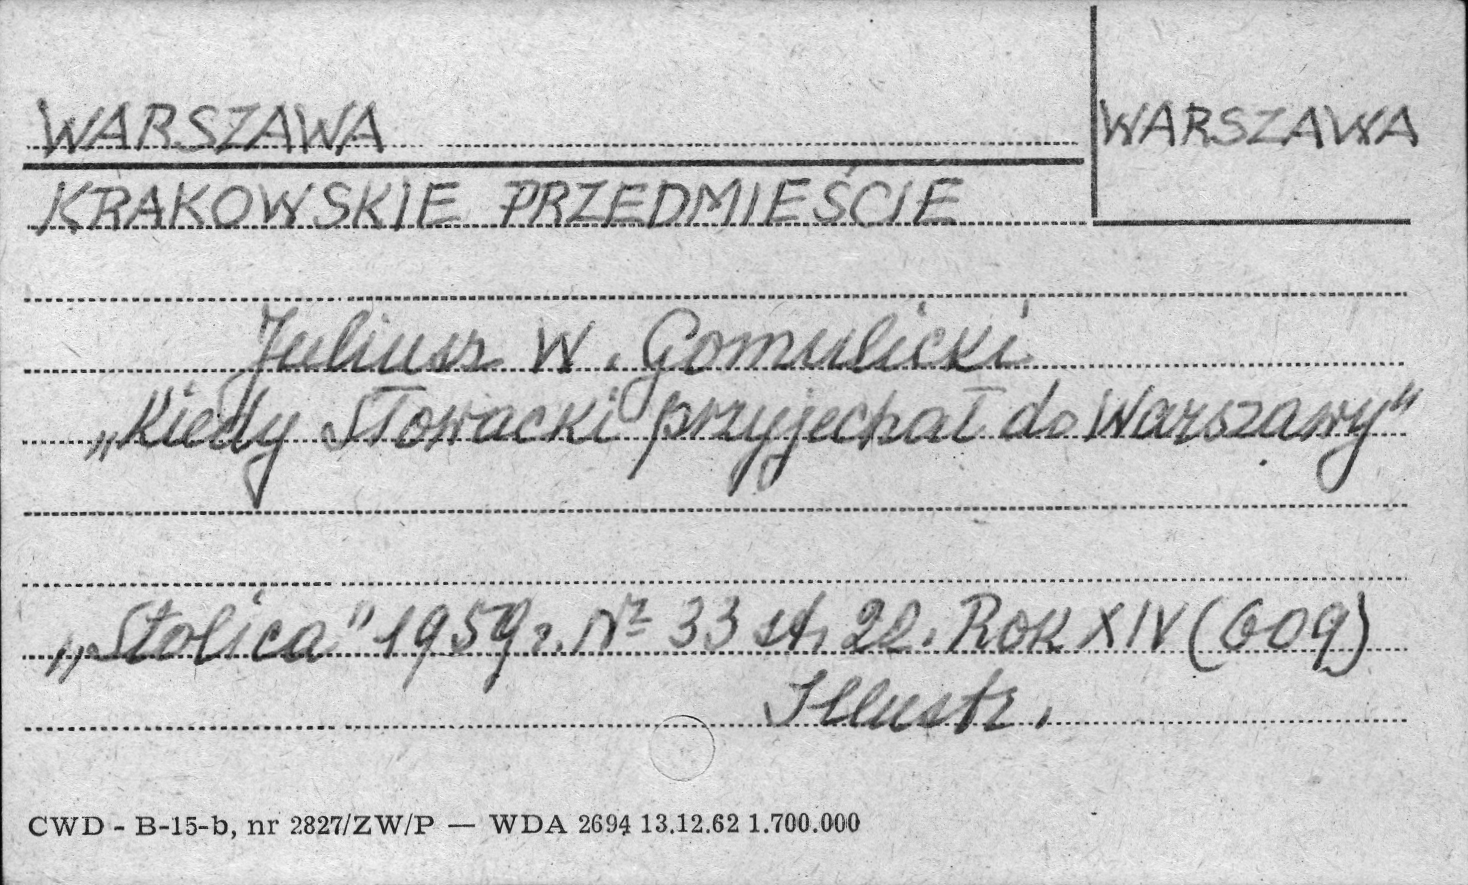 WARSZAWA
WARSZAWA
KRAKOWSKIE PRZEDMIEŚCIE
Juliusz W. Gomulicki
„Kiedy Słowacki przyjechał do Warszawy"
„Stolica" 1959 r. Nr 33 st. 22. Rok XIV (609)
Illustr.
CWD - B-15-b, nr 2827/ZW/P — WDA 2694 13.12.62 1.700.000